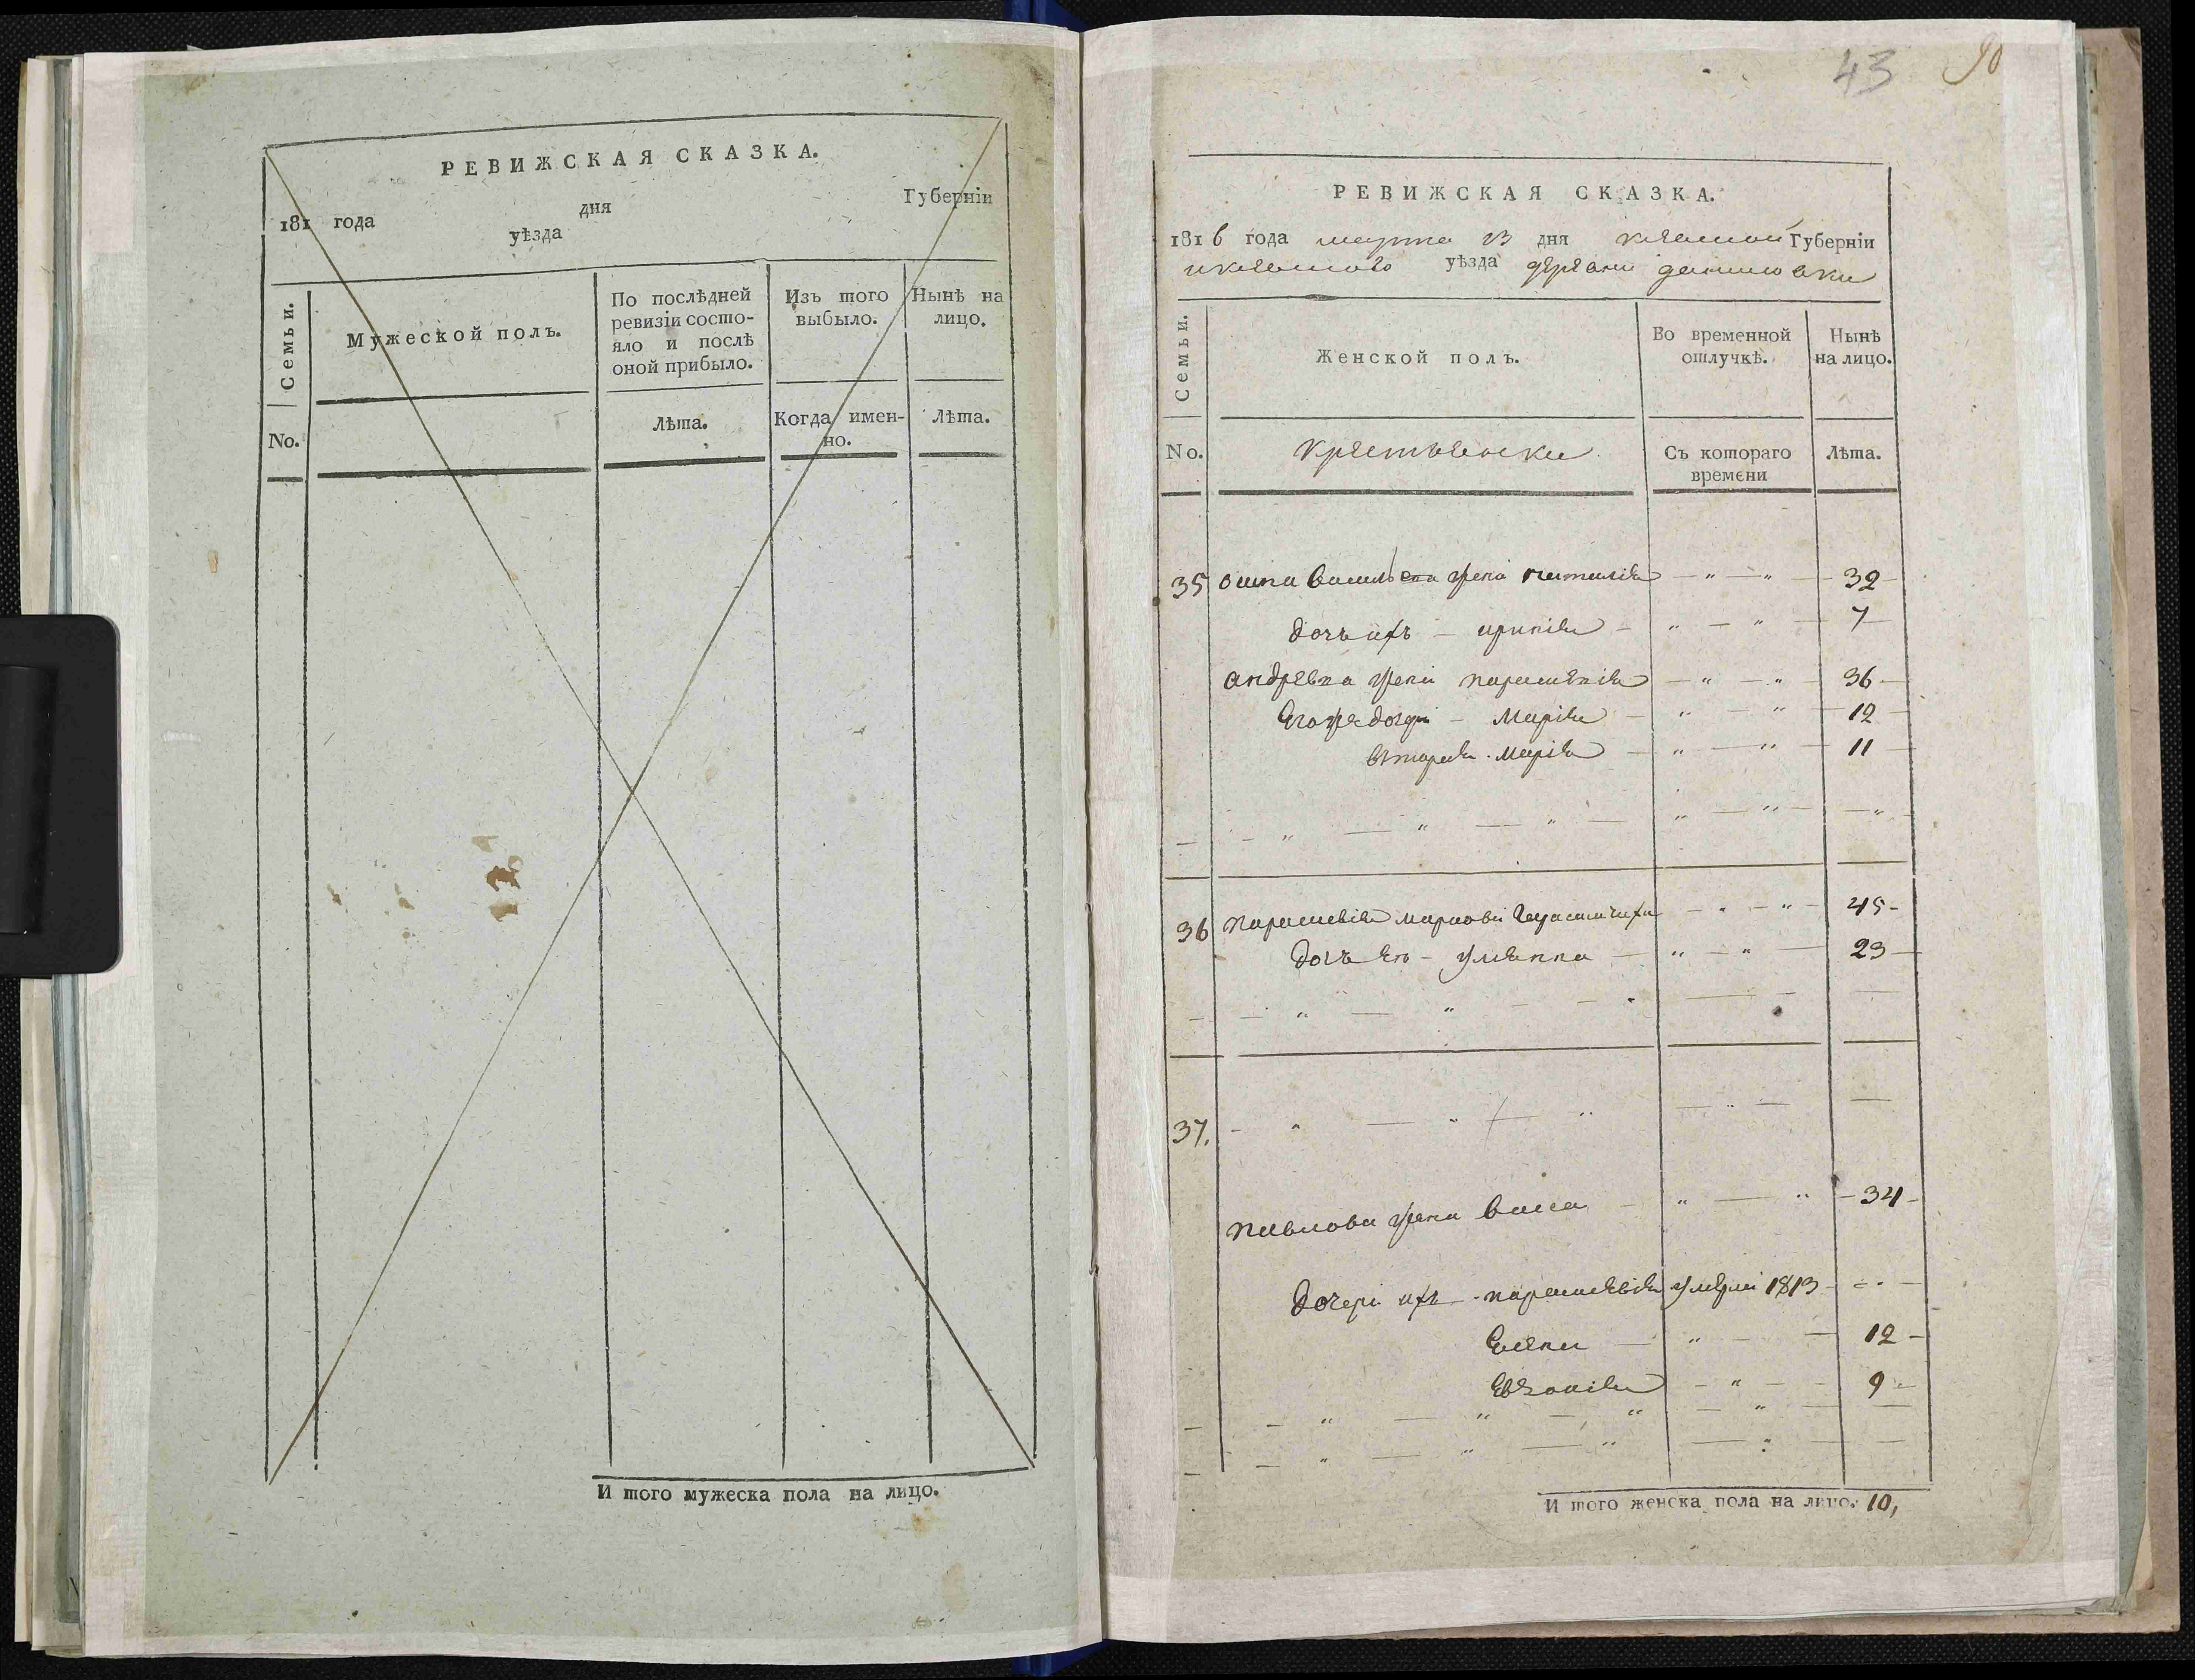 РЕВИЖСКАЯ СКАЗКА.
181 года дня Губерніи
уѣзда
Семьи.
Мужеской полъ.
По послѣдней ревизіи состо-
яло и послѣ
оной прибыло.
Изъ того
выбыло.
Нынѣ на
лицо.
No.
Лѣта.
Когда имен-
но.
Лѣта.
И того мужеска пола на лицо.
43 90
РЕВИЖСКАЯ СКАЗКА.
1816 года марта 13 дня Губерніи
уѣзда деревни
Семьи.
Женской полъ.
Во временной
отлучкѣ.
Нынѣ
на лицо.
No.
крестьянски
Съ котораго
времени
Лѣта.
35 жена наталія 32
дочь ихъ ирина 7
андрѣвна жена парасковія 36
Его же дочери Марія 12
втарая Марія 11
36 парасковія маркова 45
дочь Ея улянна 23
37.
павлова жена васса 34
дочери ихъ парасковія умерла 1813
Елена 12
Евдокія 9
И того женска пола на лицо. 10,